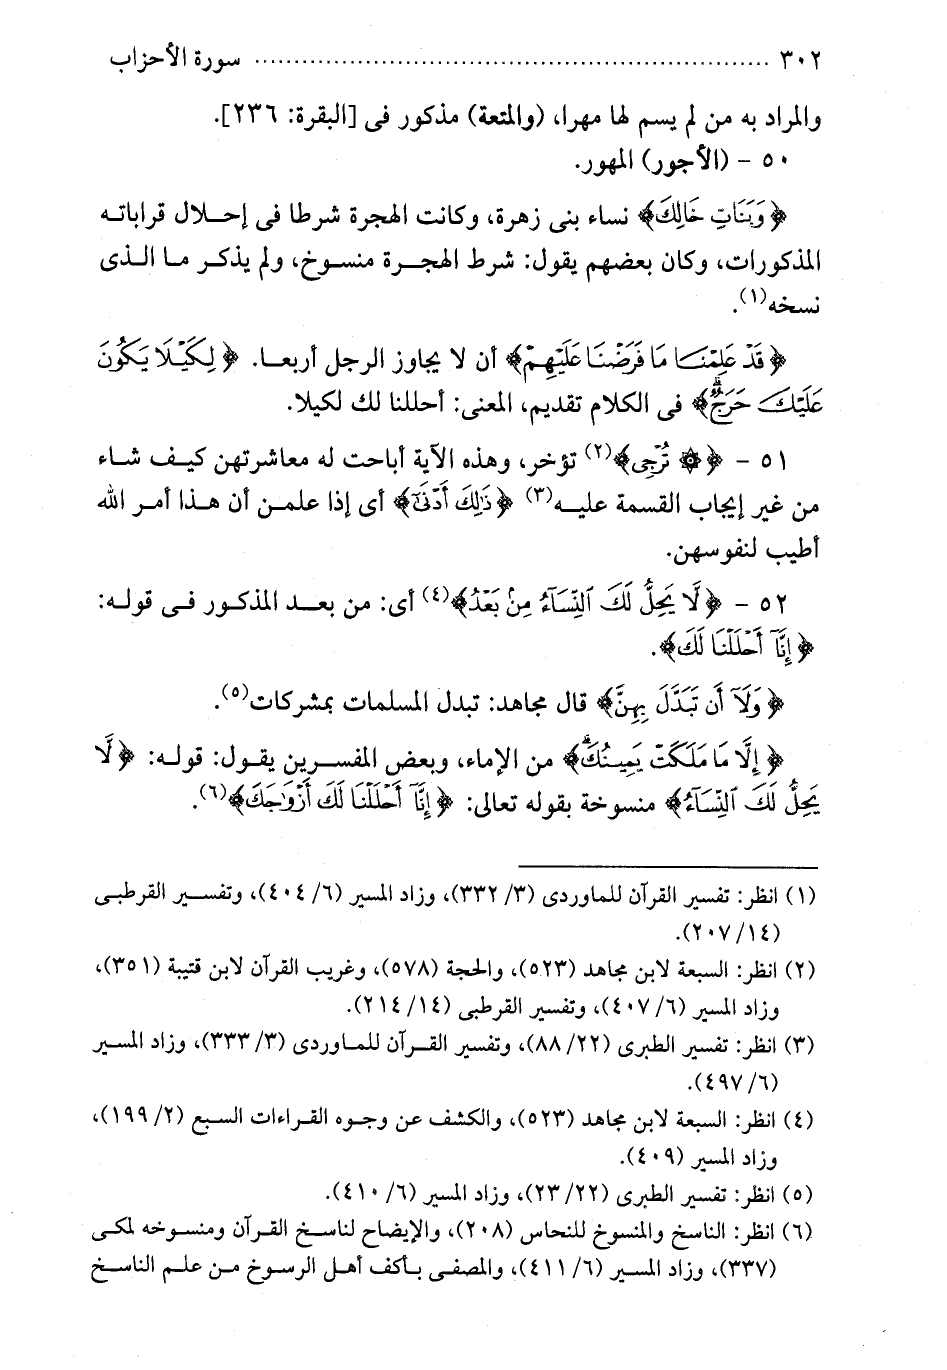 ٣٠٢ .......................................................... سورة الأحزاب
والمراد به من لم يسم لها مهرا، (والمتعة) مذكور فى [البقرة: ٢٣٦].
٥٠ – (الأجور) المهور.
﴿وَبَنَاتِ خَالِكَ﴾ نساء بنى زهرة، وكانت الهجرة شرطا فى إحلال قراباته
المذكورات، وكان بعضهم يقول: شرط الهجرة منسوخ، ولم يذكر ما الذى
نسخه(١).
﴿قَدْ عَلِمْنَا مَا فَرَضْنَا عَلَيْهِمْ﴾ أن لا يجاوز الرجل أربعا. ﴿لِكَيْلَا يَكُونَ
عَلَيْكَ حَرَجٌ﴾ فى الكلام تقديم، المعنى: أحللنا لك لكيلا.
٥١ – ﴿۞ تُرْجِى﴾(٢) تؤخر، وهذه الآية أباحت له معاشرتهن كيف شاء
من غير إيجاب القسمة عليه(٣) ﴿ذَٰلِكَ أَدْنَىٰٓ﴾ أى إذا علمن أن هذا أمر الله
أطيب لنفوسهن.
٥٢ – ﴿لَّا يَحِلُّ لَكَ ٱلنِّسَآءُ مِنۢ بَعْدُ﴾(٤) أى: من بعد المذكور فى قوله:
﴿إِنَّآ أَحْلَلْنَا لَكَ﴾.
﴿وَلَآ أَن تَبَدَّلَ بِهِنَّ﴾ قال مجاهد: تبدل المسلمات بمشركات(٥).
﴿إِلَّا مَا مَلَكَتْ يَمِينُكَ﴾ من الإماء، وبعض المفسرين يقول: قوله: ﴿لَّا
يَحِلُّ لَكَ ٱلنِّسَآءُ﴾ منسوخة بقوله تعالى: ﴿إِنَّآ أَحْلَلْنَا لَكَ أَزْوَٰجَكَ﴾(٦).
(١) انظر: تفسير القرآن للماوردى (٣/ ٣٣٢)، وزاد المسير (٦/ ٤٠٤)، وتفسير القرطبى
(١٤/ ٢٠٧).
(٢) انظر: السبعة لابن مجاهد (٥٢٣)، والحجة (٥٧٨)، وغريب القرآن لابن قتيبة (٣٥١)،
وزاد المسير (٦/ ٤٠٧)، وتفسير القرطبى (١٤/ ٢١٤).
(٣) انظر: تفسير الطبرى (٢٢/ ٨٨)، وتفسير القرآن للماوردى (٣/ ٣٣٣)، وزاد المسير
(٦/ ٤٩٧).
(٤) انظر: السبعة لابن مجاهد (٥٢٣)، والكشف عن وجوه القراءات السبع (٢/ ١٩٩)،
وزاد المسير (٤٠٩).
(٥) انظر: تفسير الطبرى (٢٢/ ٢٣)، وزاد المسير (٦/ ٤١٠).
(٦) انظر: الناسخ والمنسوخ للنحاس (٢٠٨)، والإيضاح لناسخ القرآن ومنسوخه لمكى
(٣٣٧)، وزاد المسير (٦/ ٤١١)، والمصفى بأكف أهل الرسوخ من علم الناسخ